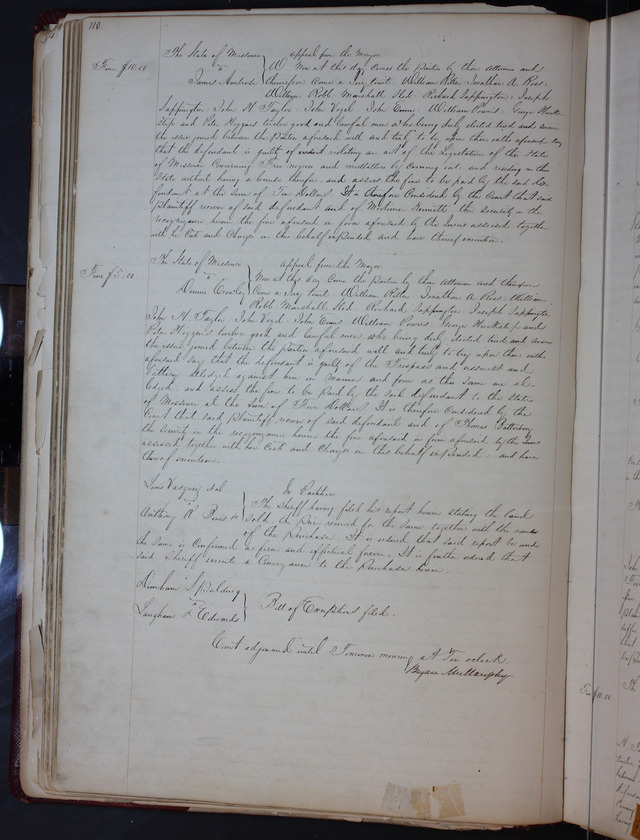 110.
The State of Missouri } appeal from the Mayor
Fine $10.00
vs } Now at this day Comes the parties by their attornies and
James Ambrose } thereupon Come a Jury towit. William Ritter Jonathan A. Ross.
William Robb Marshall Sted. Richard Sappington. Joseph
Sappington John H Taylor. John Vogel John Evins William Powers George
and Peter Higgins twelve good and lawful men who being duly elected tried and sworn
the issue joined between the parties aforesaid well and truly to try upon their oaths aforesaid say
that the defendant is guilty of violating an act of the Legislature of the State
of Missouri Concerning Free negroes and mulattoes by Coming into and residing in this
State without having a license therefor and assess the fine to be paid by the said de-
fendant at the sum of Ten Dollars It is therefore Considered by the Court that said
plaintiff recover of said defendant and of the security in the
recognizance herein the fine aforesaid in form aforesaid by the Jurors assessed together
with her Costs and Charges in this behalf expended and have thereof execution.
The State of Missouri } appeal from the Mayor
Fine $5.00
vs } Now at this day Come the parties by their attornies and thereupon
Dennis } Come a Jury towit William Ritter Jonathan A Ross. William
Robb Marshall Sted. Richard Sappington Joseph Sappington
John H Taylor John Vogel John Evins William Powers George and
Peter Higgins twelve good and lawful men who being duly elected tried and sworn
the issue joined between the parties aforesaid well and truly to try upon their oaths
aforesaid say that the defendant is guilty of the Trespass and assault and
battery alledged against him in manner and form as the same are al-
ledged. and assess the fine to be paid by the said defendant to the State
of Missouri at the sum of Five Dollars It is therefore Considered by the
Court that said plaintiff recover of said defendant and of Thomas
the security in the recognizance herein the fine aforesaid in form aforesaid by the Jurors
assessed together with her Costs and Charges in this behalf expended. and have
thereof execution.
Louis Vasquez et al } In Partition
vs } The Sheriff having filed his report herein stating the land
Anthony R } sold, the price received for the same together with the name
of the Purchaser. It is ordered that said report be and
the same is Confirmed as firm and effectual forever. It is further ordered that
said Sheriff execute a Conveyance to the Purchaser herein.
Spalding }
vs } Bill of Exceptions filed.
Langham & Edwards }
Court adjourned until Tomorrow morning at Ten oclock
Bryan Mullanphy